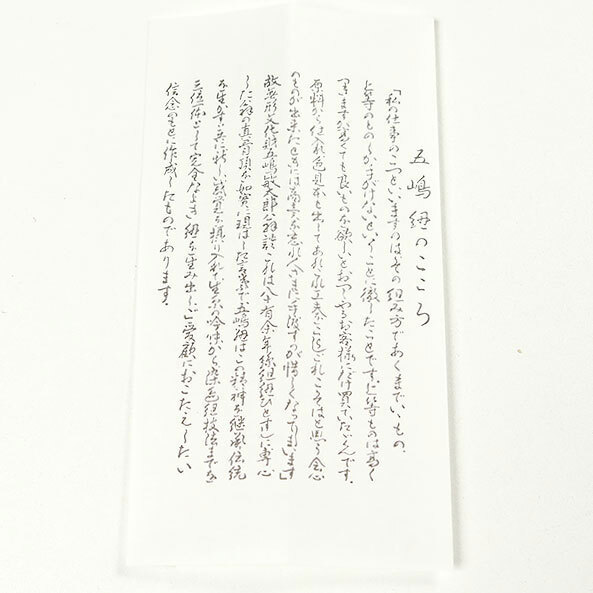 五嶋紐のこころ
「私の仕事のこつといいますのは、その組み方であくまでいゝもの、
上等のものしか手がけないといふことに徹したことです。上等ものは高く
つきますが、高くても良いものが欲しいとおつしやるお客様にだけ買ていたゞくんです。
原料から仕入れ、色見本も出してあれこれ工夫をこらし、これこそはと思う会心
のものが出来たときには商売を忘れ、人さまに手渡すのが惜しくなってしまいます」
故無形文化財五嶋敏太郎翁談 これは八十有余年絲組紐ひとすじに専心
した翁の真骨頂を如実に現はした言葉で、五嶋紐はこの精神を継承、伝統
を生かす共に新しい感覚を採り入れ、生糸の吟味から染色組技法までを
三位一体として完全なよき紐を生み出し、ご愛顧におこたえしたい
信念のもとに作成したものであります。